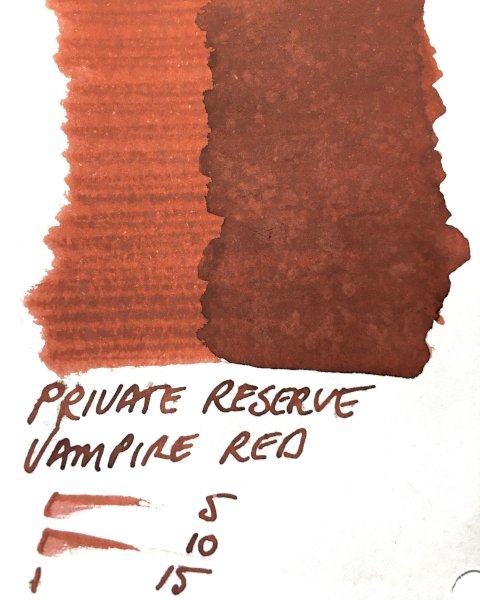 PRIVATE RESERVE
VAMPIRE RED
5
10
1 15